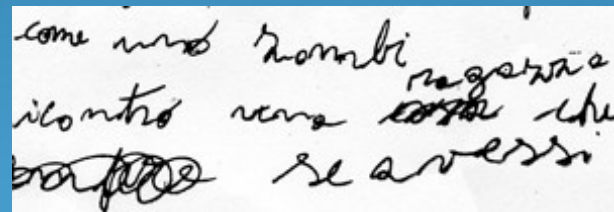 come uno zombi
ragazza
icontro una che
se avessi